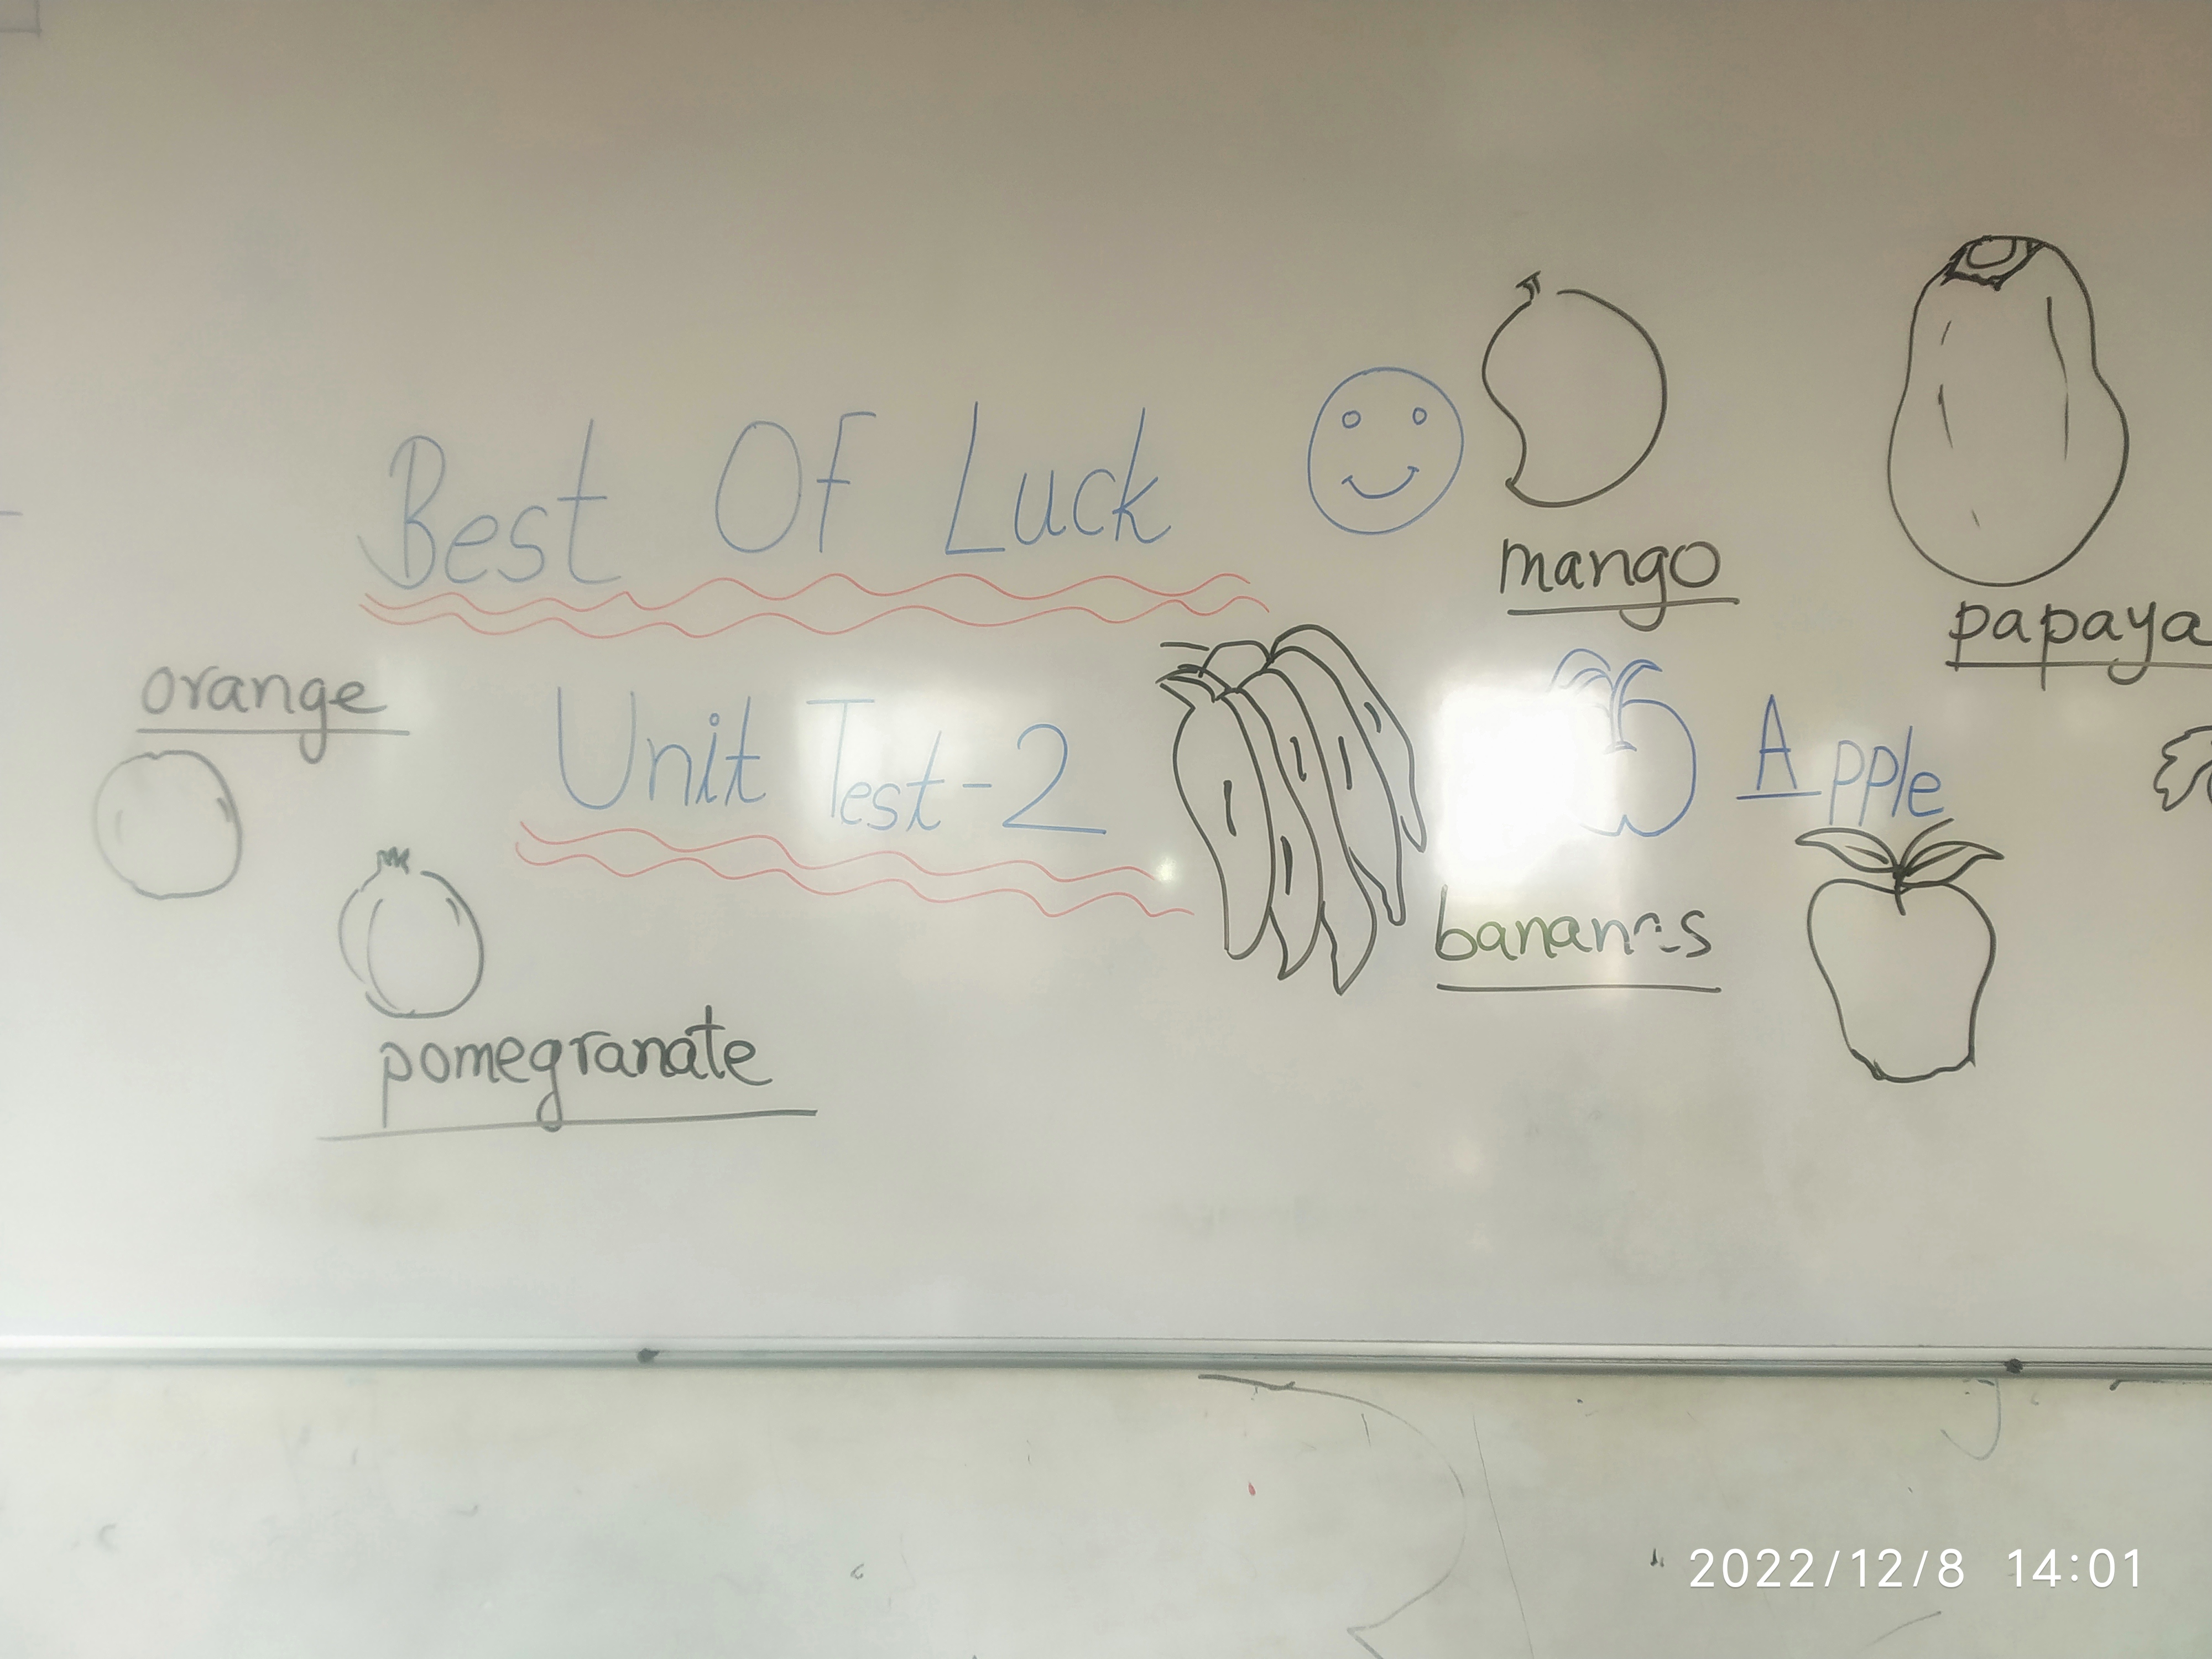 Best Of Luck
mango
papaya
orange
Unit Test-2
Apple
bananas
pomegranate
2022/12/8 14:01